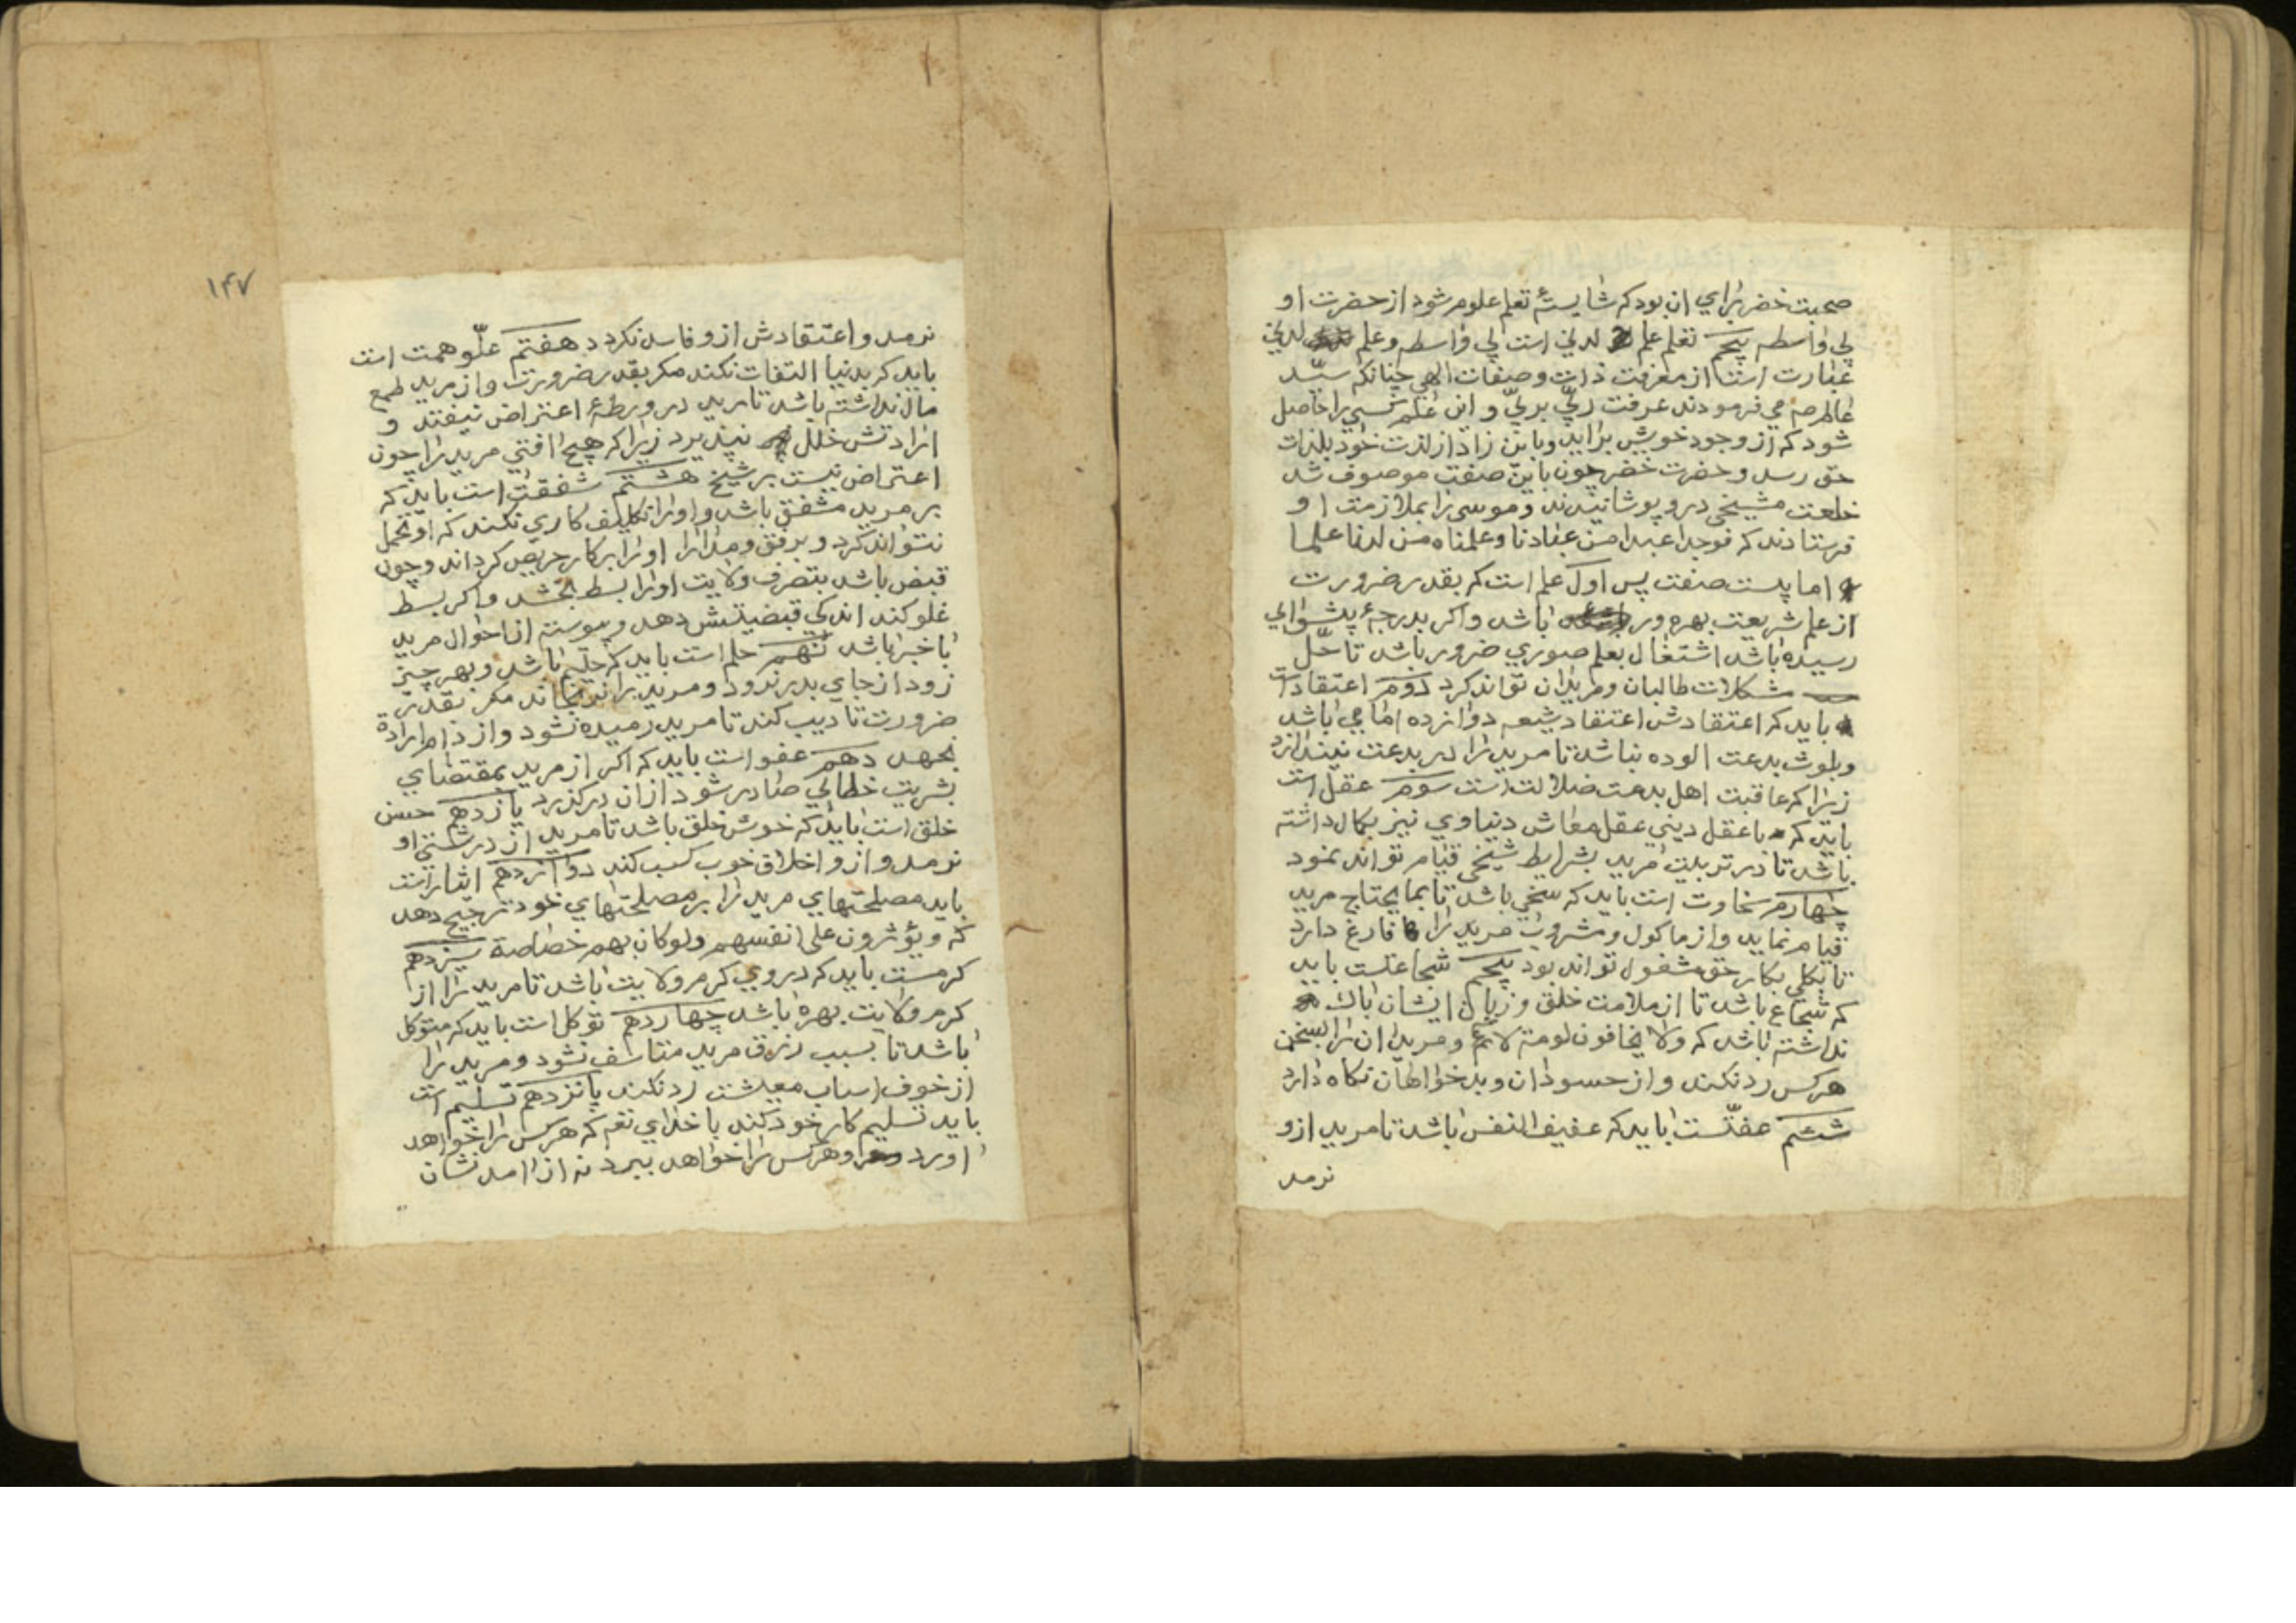 صحبت خضر برای ان بود که شایستهٔ تعلم علوم شود از حضرت او
بی واسطه پنجم تعلم علم لدنی است بی واسطه و علم لدنی
عبارت است از معرفت ذات و صفات الهی چنانکه سیّد
عالم صم می فرمودند عرفت ربّی بربّی و این علم کسی را حاصل
شود که از وجود خویش براید و باین زاد از لذت خود بلذات
حق رسد و حضرت خضر چون باین صفت موصوف شد
خلعت مشیخی درو پوشانیدند و موسی را بملازمت او
فرستادند که فوجدا عبدا من عبادنا وعلمناه من لدنا علما
اما بیست صفت پس اول علم است که بقدر ضرورت
از علم شریعت بهره ور باشد و اکر بدرجهٔ پیشوایی
رسیده باشد اشتغال بعلم صوری ضرور باشد تا حلّ
مشکلات طالبان و مریدان تواند کرد دوم اعتقادات
باید که اعتقادش اعتقاد شیعه دوانزده امامی باشد
وبلوث بدعت الوده نباشد تا مرید را در بدعت نیندازد
زیرا که عاقبت اهل بدعت ضلالت است سوم عقل است
باید که با عقل دینی عقل معاش دنیاوی نیز بکمال داشته
باشد تا در تربیت مرید بشرایط شیخی قیام تواند نمود
چهارم سخاوت است باید که سخی باشد تا بما یحتاج مرید
قیام نماید و از ماکول و مشروب مرید را فارغ دارد
تا بکلی بکار حق مشغول تواند بود پنجم شجاعتست باید
که شجاع باشد تا از ملامت خلق و زبان ایشان باک
نداشته باشد که ولا یخافون لومة لائم و مریدان را بسخن
هر کس رد نکند و از حسودان و بدخواهان نکاه دارد
ششم عفتّست باید که عفیف النفس باشد تا مرید ازو
نرمد
۱۴۷
نرمد و اعتقادش ازو فاسد نکردد هفتم علّو همت است
باید که بدنیا التفات نکند مکر بقدر ضرورت و از مرید طمع
مال نداشته باشد تا مرید در ورطهٔ اعتراض نیفتد و
ارادتش خلل نپذیرد زیرا که هیچ افتی مرید را چون
اعتراض نیست بر شیخ هشتم شفقت است باید که
بر مرید مشفق باشد و او را تکلیف کاری نکند که او تحمل
نتواند کرد و برفق و مدارا او را بر کار حریص کرداند و چون
قبض باشد بتصرف ولایت او را بسط بخشد و اکر بسط
غلو کند اندکی قبضیتش دهد و پیوسته از احوال مرید
باخبر باشد نهم حلم است باید که حلیم باشد و بهر چیز
زود از جای بدر نرود و مرید را نرنجاند مکر بقدر
ضرورت تادیب کند تا مرید رمیده نشود و از دام ارادة
بجهد دهم عفو است باید که اکر از مرید بمقتضای
بشریت خطایی صادر شود از ان درکذرد یازدهم حسن
خلق است باید که خوش خلق باشد تا مرید از درشتی او
نرمد و ازو اخلاق خوب کسب کند دوانزدهم ایثار است
باید مصلحتهای مرید را بر مصلحتهای خود ترجیح دهد
که و یؤثرون علی انفسهم ولو کان بهم خصاصة سیزدهم
کرمست باید که در وی کرم ولایت باشد تا مرید را از
کرم ولایت بهره باشد چهاردهم توکل است باید که متوکل
باشد تا بسبب رزق مرید متاسف نشود و مرید را
از خوف اسباب معیشت رد نکند پانزدهم تسلیم است
باید تسلیم کار خود کند با خدای تعم که هر کس را خواهد
اورد و هر کس را خواهد ببرد نه از امدنشان